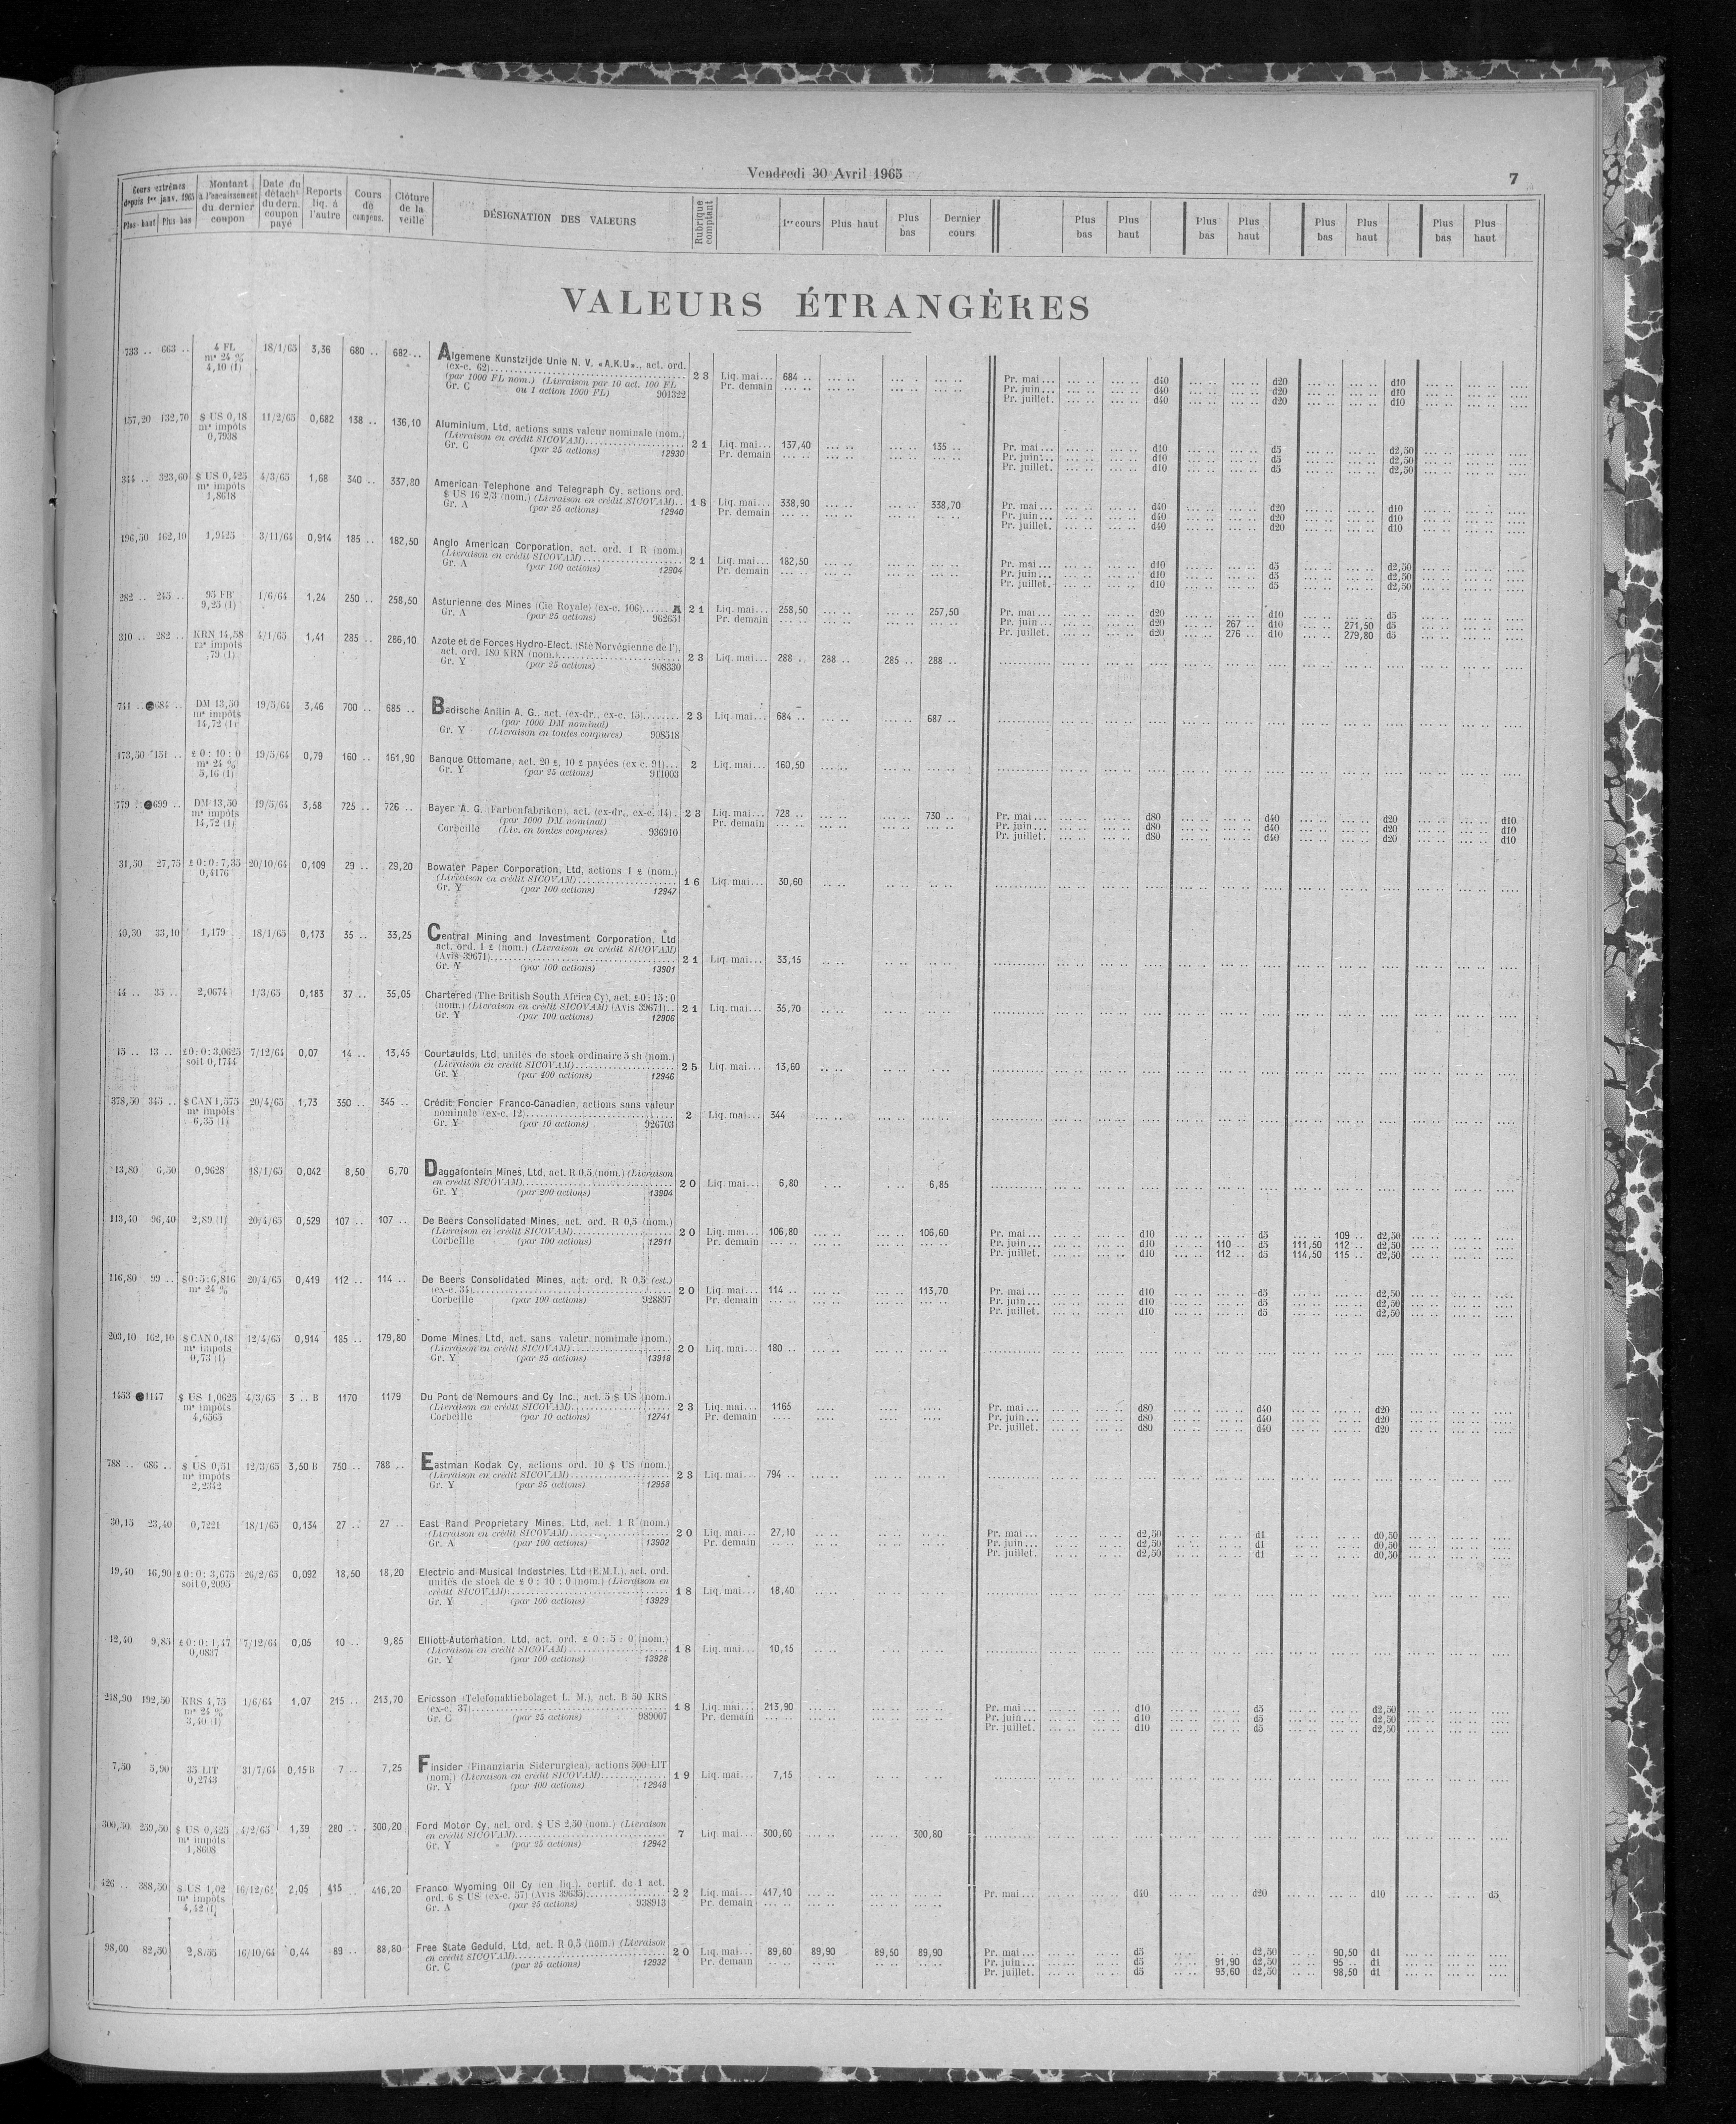 Vendredi 30 Avril 1965
7
Cours extrêmes depuis 1er janv. 1965 Plus haut Plus bas | Montant à l'encaissement du dernier coupon | Date du détacht du dern. coupon payé | Reports liq. à l'autre | Cours de compens. | Clôture de la veille | DÉSIGNATION DES VALEURS | Rubrique comptant | 1er cours | Plus haut | Plus bas | Dernier cours | Plus bas | Plus haut | Plus bas | Plus haut | Plus bas | Plus haut | Plus bas | Plus haut
VALEURS ÉTRANGÈRES
733 .. 663 .. 4 FL 18/1/65 3,36 680 .. 682 .. Algemene Kunstzijde Unie N. V. «A.K.U», act. ord.
ms 24 % (ex-c. 62)
4,10 (1) (par 1000 FL nom.) (Livraison par 10 act. 100 FL 23 Liq. mai... 684 .. Pr. mai... d40 d20 d10
Gr. C ou 1 action 1000 FL) 901322 Pr. demain Pr. juin... d40 d20 d10
Pr. juillet. d40 d20 d10
137,20 132,70 $ US 0,18 11/2/65 0,682 138 .. 136,10 Aluminium, Ltd, actions sans valeur nominale (nom.)
ms impôts (Livraison en crédit SICOVAM) 21 Liq. mai... 137,40 135 .. Pr. mai... d10 d5 d2,50
0,7938 Gr. C (par 25 actions) 12930 Pr. demain Pr. juin... d10 d5 d2,50
Pr. juillet. d10 d5 d2,50
344 .. 323,60 $ US 0,425 4/3/65 1,68 340 .. 337,80 American Telephone and Telegraph Cy, actions ord.
ms impôts $ US 16 2/3 (nom.) (Livraison en crédit SICOVAM).. 18 Liq. mai... 338,90 338,70 Pr. mai... d40 d20 d10
1,8618 Gr. A (par 25 actions) 12940 Pr. demain Pr. juin... d40 d20 d10
Pr. juillet. d40 d20 d10
196,50 162,10 1,9425 3/11/64 0,914 185 .. 182,50 Anglo American Corporation, act. ord. 1 R (nom.)
(Livraison en crédit SICOVAM) 21 Liq. mai... 182,50 Pr. mai... d10 d5 d2,50
Gr. A (par 100 actions) 12904 Pr. demain Pr. juin... d10 d5 d2,50
Pr. juillet. d10 d5 d2,50
282 .. 245 .. 95 FB 1/6/64 1,24 250 .. 258,50 Asturienne des Mines (Cie Royale) (ex-c. 106)...... A 21 Liq. mai... 258,50 257,50 Pr. mai... d20 d10 d5
9,25 (1) Gr. A (par 25 actions) 962651 Pr. demain Pr. juin... d20 267 .. d10 271,50 d5
Pr. juillet. d20 276 .. d10 279,80 d5
310 .. 282 .. KRN 14,58 4/1/65 1,41 285 .. 286,10 Azote et de Forces Hydro-Elect. (Sté Norvégienne de l'),
ms impôts act. ord. 180 KRN (nom.) 23 Liq. mai... 288 .. 288 .. 285 .. 288 ..
,79 (1) Gr. Y (par 25 actions) 908330
741 .. 684 .. DM 13,50 19/5/64 3,46 700 .. 685 .. Badische Anilin A. G., act. (ex-dr., ex-c. 15)........ 23 Liq. mai... 684 .. 687 ..
ms impôts (par 1000 DM nominal)
14,72 (1) Gr. Y (Livraison en toutes coupures) 908518
173,50 151 .. £ 0 : 10 : 0 19/5/64 0,79 160 .. 161,90 Banque Ottomane, act. 20 £, 10 £ payées (ex-c. 91)... 2 Liq. mai... 160,50
ms 24 % Gr. Y (par 25 actions) 911003
5,16 (1)
779 .. 699 .. DM 13,50 19/5/64 3,58 725 .. 726 .. Bayer A. G. (Farbenfabriken), act. (ex-dr., ex-c. 14). 23 Liq. mai... 728 .. 730 .. Pr. mai... d80 d40 d20 d10
ms impôts (par 1000 DM nominal) Pr. demain Pr. juin... d80 d40 d20 d10
14,72 (1) Corbeille (Liv. en toutes coupures) 936910 Pr. juillet. d80 d40 d20 d10
31,50 27,75 £ 0 : 0 : 7,35 20/10/64 0,109 29 .. 29,20 Bowater Paper Corporation, Ltd, actions 1 £ (nom.)
0,4176 (Livraison en crédit SICOVAM) 16 Liq. mai... 30,60
Gr. Y (par 100 actions) 12947
40,30 33,10 1,179 18/1/65 0,173 35 .. 33,25 Central Mining and Investment Corporation, Ltd
act. ord. 1 £ (nom.) (Livraison en crédit SICOVAM)
(Avis 39671) 21 Liq. mai... 33,15
Gr. Y (par 100 actions) 13901
44 .. 35 .. 2,0674 1/3/65 0,183 37 .. 35,05 Chartered (The British South Africa Cy), act. £ 0 : 15 : 0
(nom.) (Livraison en crédit SICOVAM) (Avis 39671).. 21 Liq. mai... 35,70
Gr. Y (par 100 actions) 12906
15 .. 13 .. £ 0 : 0 : 3,0625 7/12/64 0,07 14 .. 13,45 Courtaulds, Ltd, unités de stock ordinaire 5 sh (nom.)
soit 0,1744 (Livraison en crédit SICOVAM) 25 Liq. mai... 13,60
Gr. Y (par 400 actions) 12946
378,50 345 .. $ CAN 1,575 20/4/65 1,73 350 .. 345 .. Crédit Foncier Franco-Canadien, actions sans valeur
ms impôts nominale (ex-c. 12) 2 Liq. mai... 344
6,35 (1) Gr. Y (par 10 actions) 926703
13,80 6,50 0,9628 18/1/65 0,042 8,50 6,70 Daggafontein Mines, Ltd, act. R 0,5 (nom.) (Livraison
en crédit SICOVAM) 20 Liq. mai... 6,80 6,85
Gr. Y (par 200 actions) 13904
113,40 96,40 2,89 (1) 20/4/65 0,529 107 .. 107 .. De Beers Consolidated Mines, act. ord. R 0,5 (nom.)
(Livraison en crédit SICOVAM) 20 Liq. mai... 106,80 106,60 Pr. mai... d10 d5 109 .. d2,50
Corbeille (par 100 actions) 12911 Pr. demain Pr. juin... d10 110 .. d5 111,50 112 .. d2,50
Pr. juillet. d10 112 .. d5 114,50 115 .. d2,50
116,80 99 .. $ 0 : 5 : 6,816 20/4/65 0,419 112 .. 114 .. De Beers Consolidated Mines, act. ord. R 0,5 (est.)
ms 24 % (ex-c. 34) 20 Liq. mai... 114 .. 113,70 Pr. mai... d10 d5 d2,50
Corbeille (par 100 actions) 928897 Pr. demain Pr. juin... d10 d5 d2,50
Pr. juillet. d10 d5 d2,50
203,10 162,10 $ CAN 0,18 12/4/65 0,914 185 .. 179,80 Dome Mines, Ltd, act. sans valeur nominale (nom.)
ms impôts (Livraison en crédit SICOVAM) 20 Liq. mai... 180 ..
0,73 (1) Gr. Y (par 25 actions) 13918
1453 1147 $ US 1,0625 4/3/65 3 .. B 1170 1179 Du Pont de Nemours and Cy Inc., act. 5 $ US (nom.)
ms impôts (Livraison en crédit SICOVAM) 23 Liq. mai... 1165 Pr. mai... d80 d40 d20
4,6565 Corbeille (par 10 actions) 12741 Pr. demain Pr. juin... d80 d40 d20
Pr. juillet. d80 d40 d20
788 .. 686 .. $ US 0,51 12/3/65 3,50 B 750 .. 788 .. Eastman Kodak Cy, actions ord. 10 $ US (nom.)
ms impôts (Livraison en crédit SICOVAM) 23 Liq. mai... 794 ..
2,2342 Gr. Y (par 25 actions) 12958
30,15 23,40 0,7221 18/1/65 0,134 27 .. 27 .. East Rand Proprietary Mines, Ltd, act. 1 R (nom.)
(Livraison en crédit SICOVAM) 20 Liq. mai... 27,10 Pr. mai... d2,50 d1 d0,50
Gr. A (par 100 actions) 13902 Pr. demain Pr. juin... d2,50 d1 d0,50
Pr. juillet. d2,50 d1 d0,50
19,40 16,90 £ 0 : 0 : 3,675 26/2/65 0,092 18,50 18,20 Electric and Musical Industries, Ltd (E.M.I.), act. ord.
soit 0,2095 unités de stock de £ 0 : 10 : 0 (nom.) (Livraison en
crédit SICOVAM) 18 Liq. mai... 18,40
Gr. Y (par 100 actions) 13929
12,40 9,85 £ 0 : 0 : 1,47 7/12/64 0,05 10 .. 9,85 Elliott-Automation, Ltd, act. ord. £ 0 : 5 : 0 (nom.)
0,0837 (Livraison en crédit SICOVAM) 18 Liq. mai... 10,15
Gr. Y (par 100 actions) 13928
218,90 192,50 KRS 4,75 1/6/64 1,07 215 .. 213,70 Ericsson (Telefonaktiebolaget L. M.), act. B 50 KRS
ms 24 % (ex-c. 37) 18 Liq. mai... 213,90 Pr. mai... d10 d5 d2,50
3,40 (1) Gr. C (par 25 actions) 989007 Pr. demain Pr. juin... d10 d5 d2,50
Pr. juillet. d10 d5 d2,50
7,50 5,90 35 LIT 31/7/64 0,15 B 7 .. 7,25 Finsider (Finanziaria Siderurgica), actions 500 LIT
0,2743 (nom.) (Livraison en crédit SICOVAM) 19 Liq. mai... 7,15
Gr. Y (par 400 actions) 12948
300,50 259,50 $ US 0,425 4/2/65 1,39 280 .. 300,20 Ford Motor Cy, act. ord. $ US 2,50 (nom.) (Livraison
ms impôts en crédit SICOVAM) 7 Liq. mai... 300,60 300,80
1,8608 Gr. Y (par 25 actions) 12942
426 .. 388,50 $ US 1,02 16/12/64 2,05 415 .. 416,20 Franco Wyoming Oil Cy (en liq.), certif. de 1 act.
ms impôts ord. 6 $ US (ex-c. 57) (Avis 39635) 22 Liq. mai... 417,10 Pr. mai... d40 d20 d10 d5
4,42 (1) Gr. A (par 25 actions) 938913 Pr. demain
98,60 82,50 2,8755 16/10/64 0,44 89 .. 88,80 Free State Geduld, Ltd, act. R 0,5 (nom.) (Livraison
en crédit SICOVAM) 20 Liq. mai... 89,60 89,90 89,50 89,90 Pr. mai... d5 d2,50 90,50 d1
Gr. C (par 25 actions) 12932 Pr. demain Pr. juin... d5 91,90 d2,50 95 .. d1
Pr. juillet. d5 93,60 d2,50 98,50 d1